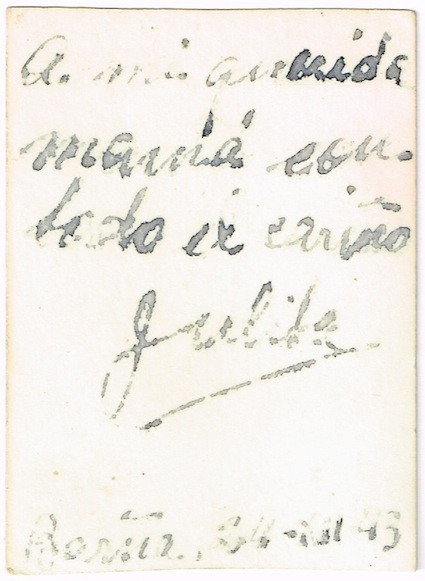 A mi querida
mamá con
todo el cariño
Julita
24-XII-43